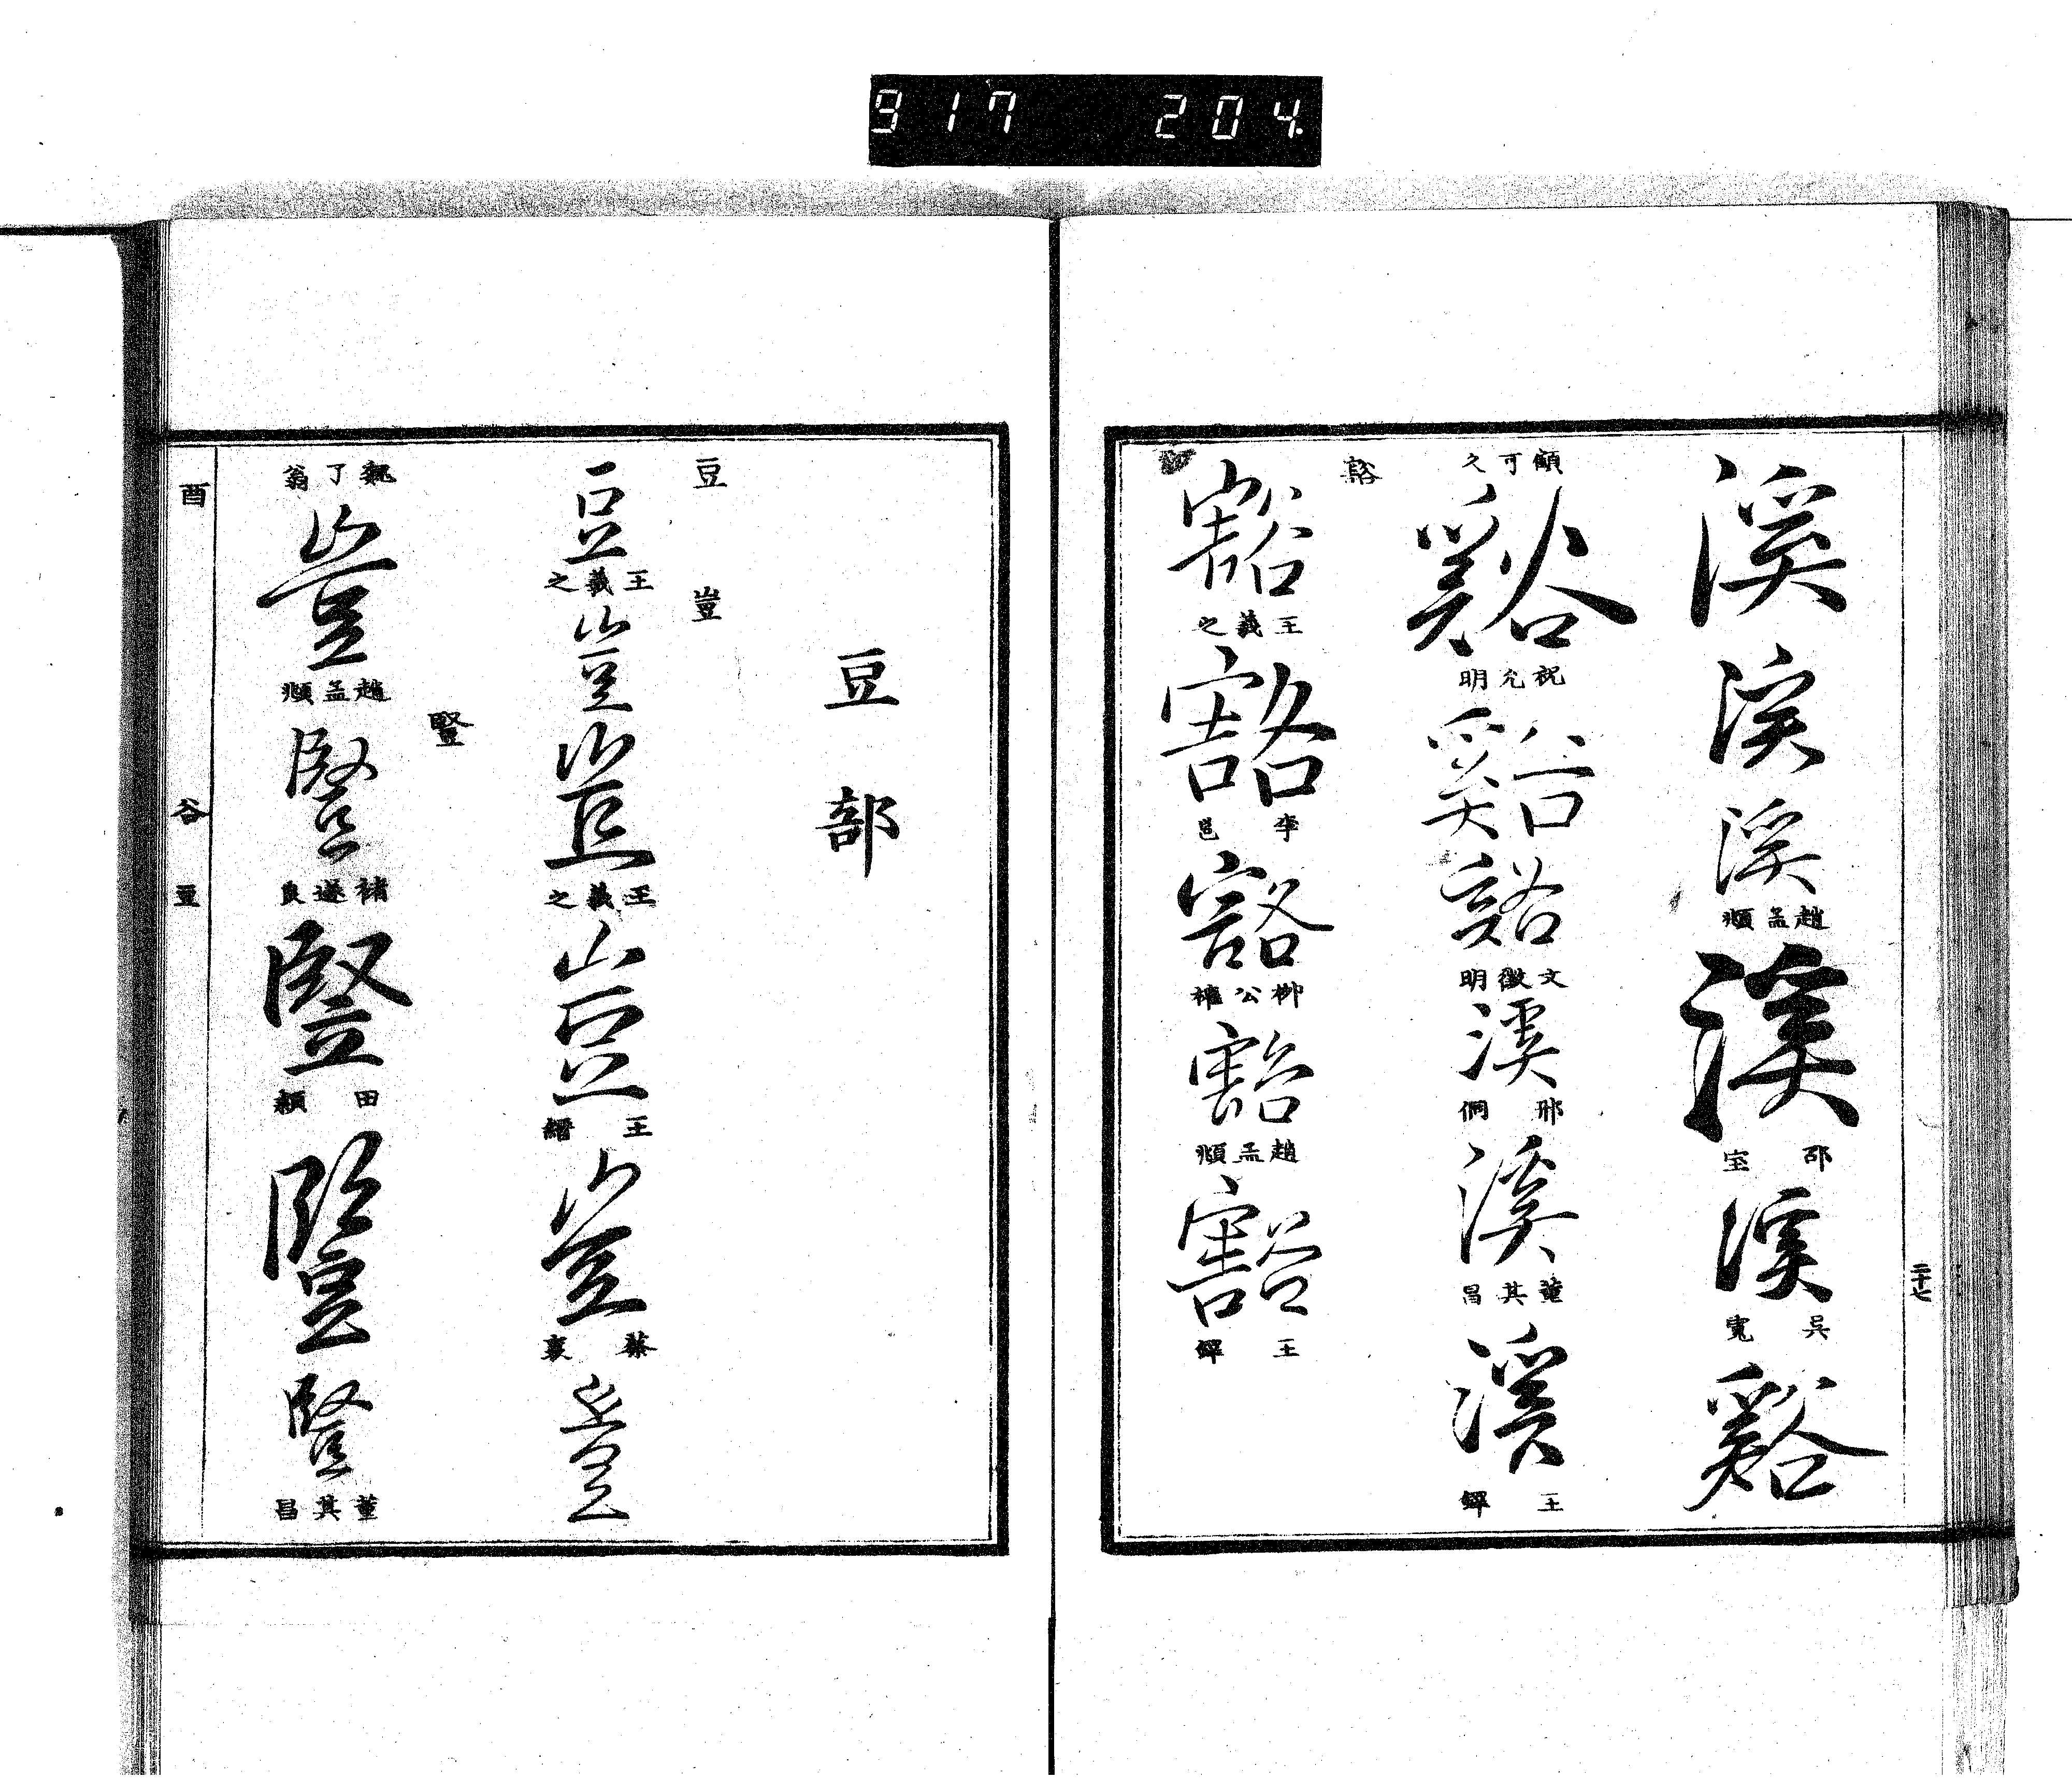 917 204
二十七
溪
溪
溪
趙孟頫
溪
邵宝
溪
吳寬
谿
顧可久
谿
祝允明
谿
谿
文徵明
溪
邢侗
溪
董其昌
溪
王鐸
豁
豁
王羲之
豁
李邕
豁
柳公權
豁
趙孟頫
豁
王鐸
豆部
豆
豈
豆
王羲之
豈
豈
王羲之
豈
王縉
豈
蔡襄
豈
魏了翁
豈
趙孟頫
豎
豎
褚遂良
豎
田穎
豎
豎
董其昌
酉
谷
豆